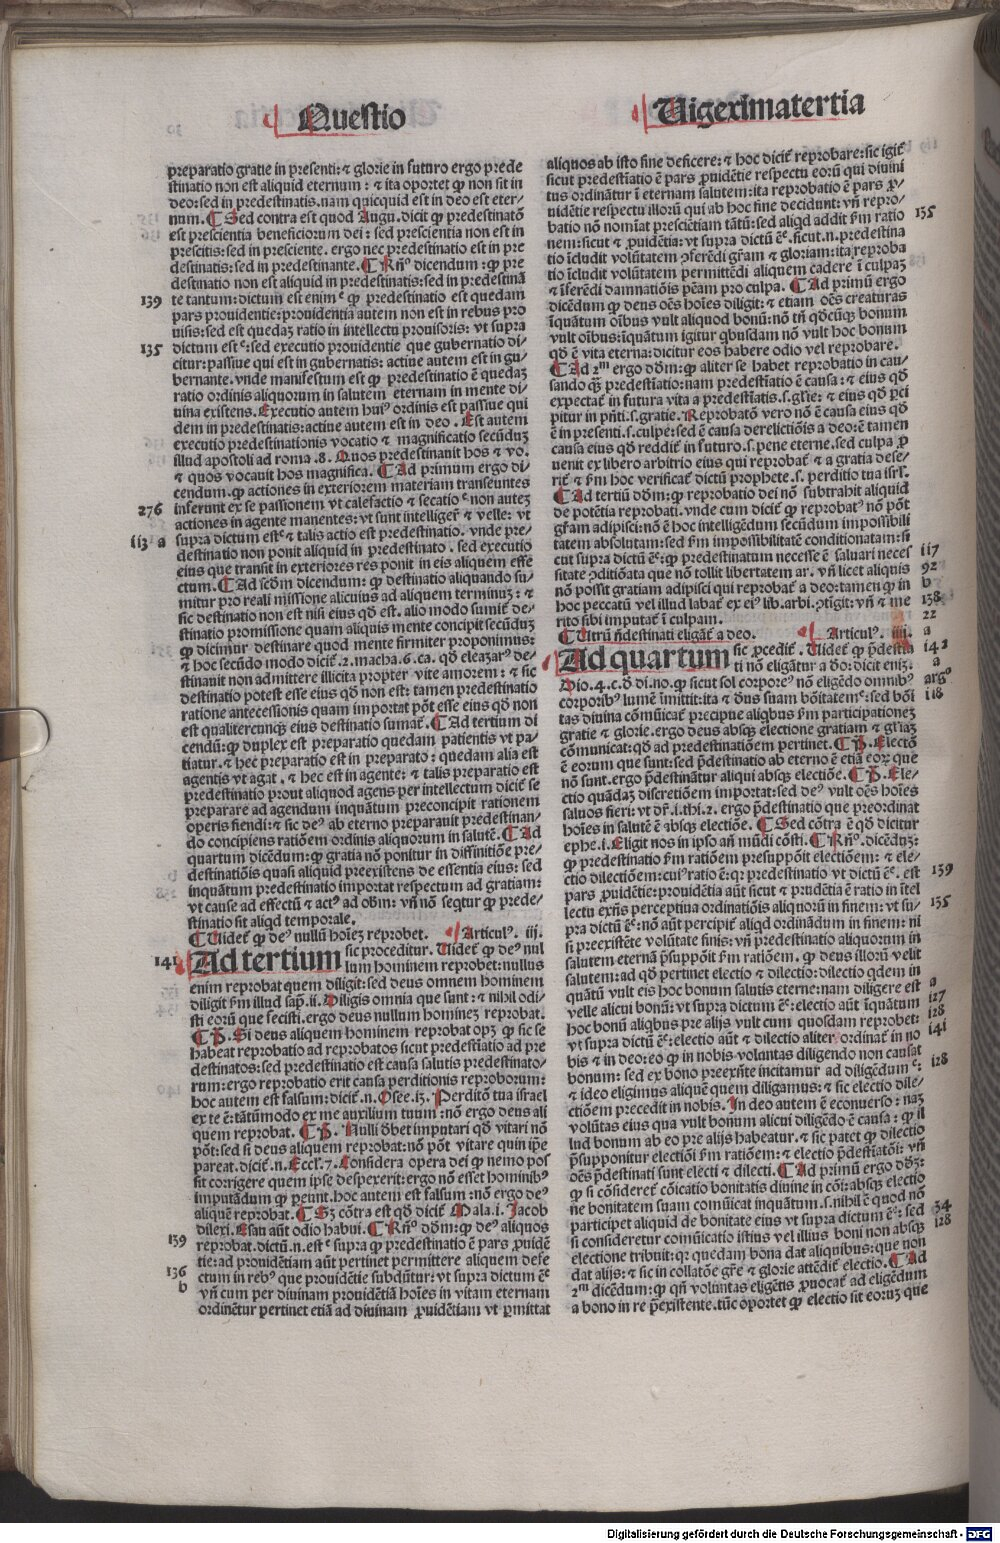 Questio
Uigeximatertia
preparatio gratie in presenti: ⁊ glorie in futuro ergo prede⸗
stinatio non est aliquid eternum: ⁊ ita oportet ꝙ non sit in
deo: sed in predestinatis. nam quicquid est in deo est eter⸗
num. ¶ Sed contra est quod Augu. dicit ꝙ predestinatō
est prescientia beneficiorum dei: sed prescientia non est in
prescitis: sed in presciente. ergo nec predestinatio est in pre
destinatis: sed in predestinante. ¶ Rñꝰ dicendum: ꝙ pre
destinatio non est aliquid in predestinatis: sed in predestinā
139
te tantum: dictum est enim ᶜ ꝙ predestinatio est quedam
pars prouidentie: prouidentia autem non est in rebus pro
uisis: sed est quedaꝫ ratio in intellectu prouisoris: vt supra
135
dictum est ᶜ: sed executio prouidentie que gubernatio di⸗
citur: passiue qui est in gubernatis: actiue autem est in gu⸗
bernante. vnde manifestum est ꝙ predestinatio ē quedaꝫ
ratio ordinis aliquorum in salutem eternam in mente di⸗
uina existens. Executio autem huiꝰ ordinis est passiue qui
dem in predestinatis: actiue autem est in deo. Est autem
executio predestinationis vocatio ⁊ magnificatio secūduꝫ
illud apostoli ad roma. 8. Quos predestinauit hos ⁊ vo.
⁊ quos vocauit hos magnifica. ¶ Ad primum ergo di⸗
cendum. ꝙ actiones in exteriorem materiam transeuntes
276
inferunt ex se passionem vt calefactio ⁊ secatio ᶜ non auteꝫ
actiones in agente manentes: vt sunt intelliger̄ ⁊ velle: vt
113 a
supra dictum est ᶜ ⁊ talis actio est predestinatio. vnde pre⸗
destinatio non ponit aliquid in predestinato. sed executio
eius que transit in exteriores res ponit in eis aliquem effe
ctum. ¶ Ad scd̄m dicendum: ꝙ destinatio aliquando su⸗
mitur pro reali missione alicuius ad aliquem terminuꝫ: ⁊
sic destinatio non est nisi eius qd̄ est. alio modo sumit̄ de⸗
stinatio promissione quam aliquis mente concipit secūduꝫ
ꝙ dicimur destinare quod mente firmiter proponimus:
⁊ hoc secūdo modo dicit̄. 2. macha. 6. ca. qd̄ eleazarꝰ de⸗
stinauit non admittere illicita propter vite amorem: ⁊ sic
destinatio potest esse eius qd̄ non est: tamen predestinatio
ratione antecessionis quam importat pōt esse eius qd̄ non
est qualitercunqꝫ eius destinatio sumat̄. ¶ Ad tertium di
cendū: ꝙ duplex est preparatio quedam patientis vt pa⸗
tiatur. ⁊ hec preparatio est in preparato: quedam alia est
agentis vt agat. ⁊ hec est in agente: ⁊ talis preparatio est
predestinatio prout aliquod agens per intellectum dicit̄ se
preparare ad agendum inquātum preconcipit rationem
operis fiendi: ⁊ sic deꝰ ab eterno preparauit predestinan⸗
do concipiens ratiōem ordinis aliquorum in salutē. ¶ Ad
quartum dicēdum: ꝙ gratia nō ponitur in diffinitiōe pre⸗
destinatiōis quasi aliquid preexistens de essentia eius: sed
inquātum predestinatio importat respectum ad gratiam:
vt cause ad effectū ⁊ actꝰ ad obm̄: vn̄ nō seqtur ꝙ prede⸗
stinatio sit aliqd temporale.
¶ Uidet̄ ꝙ deꝰ nullū hoīeꝫ reprobet. Articulꝰ. iij.
141
Ad tertium sic proceditur. Uidet̄ ꝙ deꝰ nul
lum hominem reprobet: nullus
enim reprobat quem diligit: sed deus omnem hominem
diligit ẜm illud sap̄. ii. Diligis omnia que sunt: ⁊ nihil odi⸗
sti eorū que fecisti. ergo deus nullum homineꝫ reprobat.
¶ P̄. Si deus aliquem hominem reprobat opꝫ ꝙ sic se
habeat reprobatio ad reprobatos sicut predestīatio ad pre
destinatos: sed predestinatio est causa salutis predestinato⸗
rum: ergo reprobatio erit causa perditionis reproborum:
hoc autem est falsum: dicit̄. n. Osee. 13. Perditō tua israel
ex te ē: tātūmodo ex me auxilium tuum: nō ergo deus ali
quem reprobat. ¶ P̄. Nulli dꝫbet imputari qd̄ vitari nō
pōt: sed si deus aliquem reprobat: nō pōt vitare quin ip̄e
pareat. dicit̄. n. Eccl̄s. 7. Considera opera dei ꝙ nemo pos
sit corrigere quem ipse despexerit: ergo nō esset hominibꝰ
imputādum ꝙ peunt. hoc autem est falsum: nō ergo deꝰ
aliquē reprobat. ¶ Sꝫ cōtra est qd̄ dicit̄ Mala. i. Jacob
dilexi. Esau aūt odio habui. ¶ Rñꝰ dōm: ꝙ deꝰ aliquos
139
reprobat. dictū. n. est ᶜ supra ꝙ predestinatio ē pars ꝓuidē
tie: ad prouidētiam aūt pertinet permittere aliquem defe
136
ctum in rebꝰ que prouidētie subdūtur: vt supra dictum ē ᶜ
b
vn̄ cum per diuinam prouidētiā hoīes in vitam eternam
ordinētur pertinet etiā ad diuinam ꝓuidētiam vt ꝑmittat
aliquos ab isto fine deficere: ⁊ hoc dicit̄ reprobare: sic igit̄
sicut predestīatio ē pars ꝓuidētie respectu eorū qui diuini
tus ordinātur ī eternam salutem: ita reprobatio ē pars ꝓ⸗
uidētie respectu illorū qui ab hoc fine decidunt: vn̄ repro⸗
135
batio nō nomīat presciētiam tātū: sed aliqd addit ẜm ratio
nem: sicut ⁊ ꝓuidētia: vt supra dictū ē ᶜ. sicut. n. predestina
tio īcludit volūtatem ↄferēdi gr̄am ⁊ gloriam: ita reproba
tio īcludit volūtatem permittēdi aliquem cadere ī culpaꝫ
⁊ īferēdi damnatiōis pēam pro culpa. ¶ Ad primū ergo
dicēdum ꝙ deus oēs hoīes diligit: ⁊ etiam oēs creaturas
īquātum oībus vult aliquod bonū: nō tn̄ qd̄cūqꝫ bonum
vult oībus: īquātum igitur qbusdam nō vult hoc bonum
qd̄ ē vita eterna: dicitur eos habere odio vel reprobare.
¶ Ad 2ᵐ ergo dōm: ꝙ aliter se habet reprobatio in cau⸗
sando qꝫ predestīatio: nam predestīatio ē causa: ⁊ eius qd̄
expectat̄ in futura vita a predestīatis. s. gl̄ie: ⁊ eius qd̄ ꝑci
pitur in pn̄ti. s. gratie. Reprobatō vero nō ē causa eius qd̄
ē in presenti. s. culpe: sed ē causa derelictiōis a deo: ē tamen
causa eius qd̄ reddit̄ in futuro. s. pene eterne. sed culpa ꝓ
uenit ex libero arbitrio eius qui reprobat̄ ⁊ a gratia dese⸗
rit̄ ⁊ ẜm hoc verificat̄ dictū prophete. s. perditio tua isr̄l.
¶ Ad tertiū dōm: ꝙ reprobatio dei nō subtrahit aliquid
de potētia reprobati. vnde cum dicit̄ ꝙ reprobatꝰ nō pōt
gr̄am adipisci: nō ē hoc intelligēdum secūdum impossibili
tatem absolutam: sed ẜm impossibilitatē conditionatam: si
cut supra dictū ē ᶜ: ꝙ predestinatum necesse ē saluari neces
117
sitate ↄditiōata que nō tollit libertatem ar. vn̄ licet aliquis
92
nō possit gratiam adipisci qui reprobat̄ a deo: tamen ꝙ in
b
hoc peccatū vel illud labat̄ ex eiꝰ lib. arbi. ↄtigit: vn̄ ⁊ me
138
rito sibi imputat̄ ī culpam.
22
¶ Utrū p̄destinati eligāt̄ a deo. Articulꝰ. iiij.
a
Ad quartum sic ꝓcedit̄. Uidet̄ ꝙ p̄destīa
142
ti nō eligātur a dō: dicit eniꝫ.
a
Dio. 4. c. đ di. no. ꝙ sicut sol corporeꝰ nō eligēdo omnibꝰ
argᵒ
corporibꝰ lumē īmittit: ita ⁊ dn̄s suam bōitatem ᶜ: sed bōi
118
tas diuina cōmūicat̄ precipue aliqbus ẜm participationeꝫ
gratie ⁊ glorie. ergo deus absqꝫ electione gratiam ⁊ gl̄iaꝫ
cōmunicat: qd̄ ad predestinatiōem pertinet. ¶ P̄. Electō
ē eorum que sunt: sed p̄destinatio ab eterno ē etiā eoꝝ que
nō sunt. ergo p̄destinātur aliqui absqꝫ electiōe. ¶ P̄. Ele⸗
ctio quādaꝫ discretiōem importat: sed deꝰ vult oēs hoīes
saluos fieri: vt dr̄. i. thi. 2. ergo p̄destinatio que preordinat
hoīes in salutē ē absqꝫ electiōe. ¶ Sed cōtra ē qd̄ dicitur
ephe. i. Eligit nos in ipso an̄ mūdi cōsti. ¶ Rñꝰ. dicēduꝫ:
ꝙ predestinatio ẜm ratiōem presuppōit electiōem: ⁊ ele⸗
ctio dilectiōem: cuiꝰ ratio ē: qꝛ predestinatio vt dictū ē ᶜ. est
139
pars ꝓuidētie: prouidētia aūt sicut ⁊ prudētia ē ratio in ītel
lectu exn̄s perceptiua ordinatiōis aliquorū in finem: vt su⸗
135
pra dictū ē ᶜ: nō aūt percipit̄ aliqd ordinādum in finem: ni
si preexistēte volūtate finis: vn̄ predestinatio aliquorum in
salutem eternā p̄suppōit ẜm ratiōem. ꝙ deus illorū velit
salutem: ad qd̄ pertinet electio ⁊ dilectio: dilectio qdem in
quātū vult eis hoc bonum salutis eterne: nam diligere est
a
velle alicui bonū: vt supra dictum ē ᶜ: electio aūt īquātum
127
hoc bonū aliqbus pre alijs vult cum quosdam reprobet:
128
vt supra dictū ē ᶜ: electio aūt ⁊ dilectio aliter ordinat̄ in no
141
bis ⁊ in deo: eo ꝙ in nobis voluntas diligendo non causat
bonum: sed ex bono preexn̄te incitamur ad diligēdum ᶜ:
128
⁊ ideo eligimus aliquē quem diligamus: ⁊ sic electio dile⸗
ctiōem precedit in nobis. In deo autem ē econuerso: naꝫ
volūtas eius qua vult bonum alicui diligēdo ē causa: ꝙ il
lud bonum ab eo pre alijs habeatur. ⁊ sic patet ꝙ dilectio
p̄supponitur electiōi ẜm ratiōem: ⁊ electio p̄destīatōi: vn̄
oēs p̄destinati sunt electi ⁊ dilecti. ¶ Ad primū ergo dōꝫ:
ꝙ si cōsideret̄ cōicatio bonitatis diuine in cōi: absqꝫ electio
ne bonitatem suam comūicat inquātum. s. nihil ē quod nō
participet aliquid de bonitate eius vt supra dictum ē ᶜ: sed
34
si consideretur comūicatio istius vel illius boni non absqꝫ
128
electione tribuit: qꝛ quedam bona dat aliquibus: que non
dat alijs: ⁊ sic in collatōe gr̄e ⁊ glorie attēdit̄ electio. ¶ Ad
2ᵐ dicēdum: ꝙ qn̄ voluntas eligētis ꝓuocat̄ ad eligēdum
a bono in re p̄existente. tūc oportet ꝙ electio sit eorum que
Digitalisierung gefördert durch die Deutsche Forschungsgemeinschaft - DFG